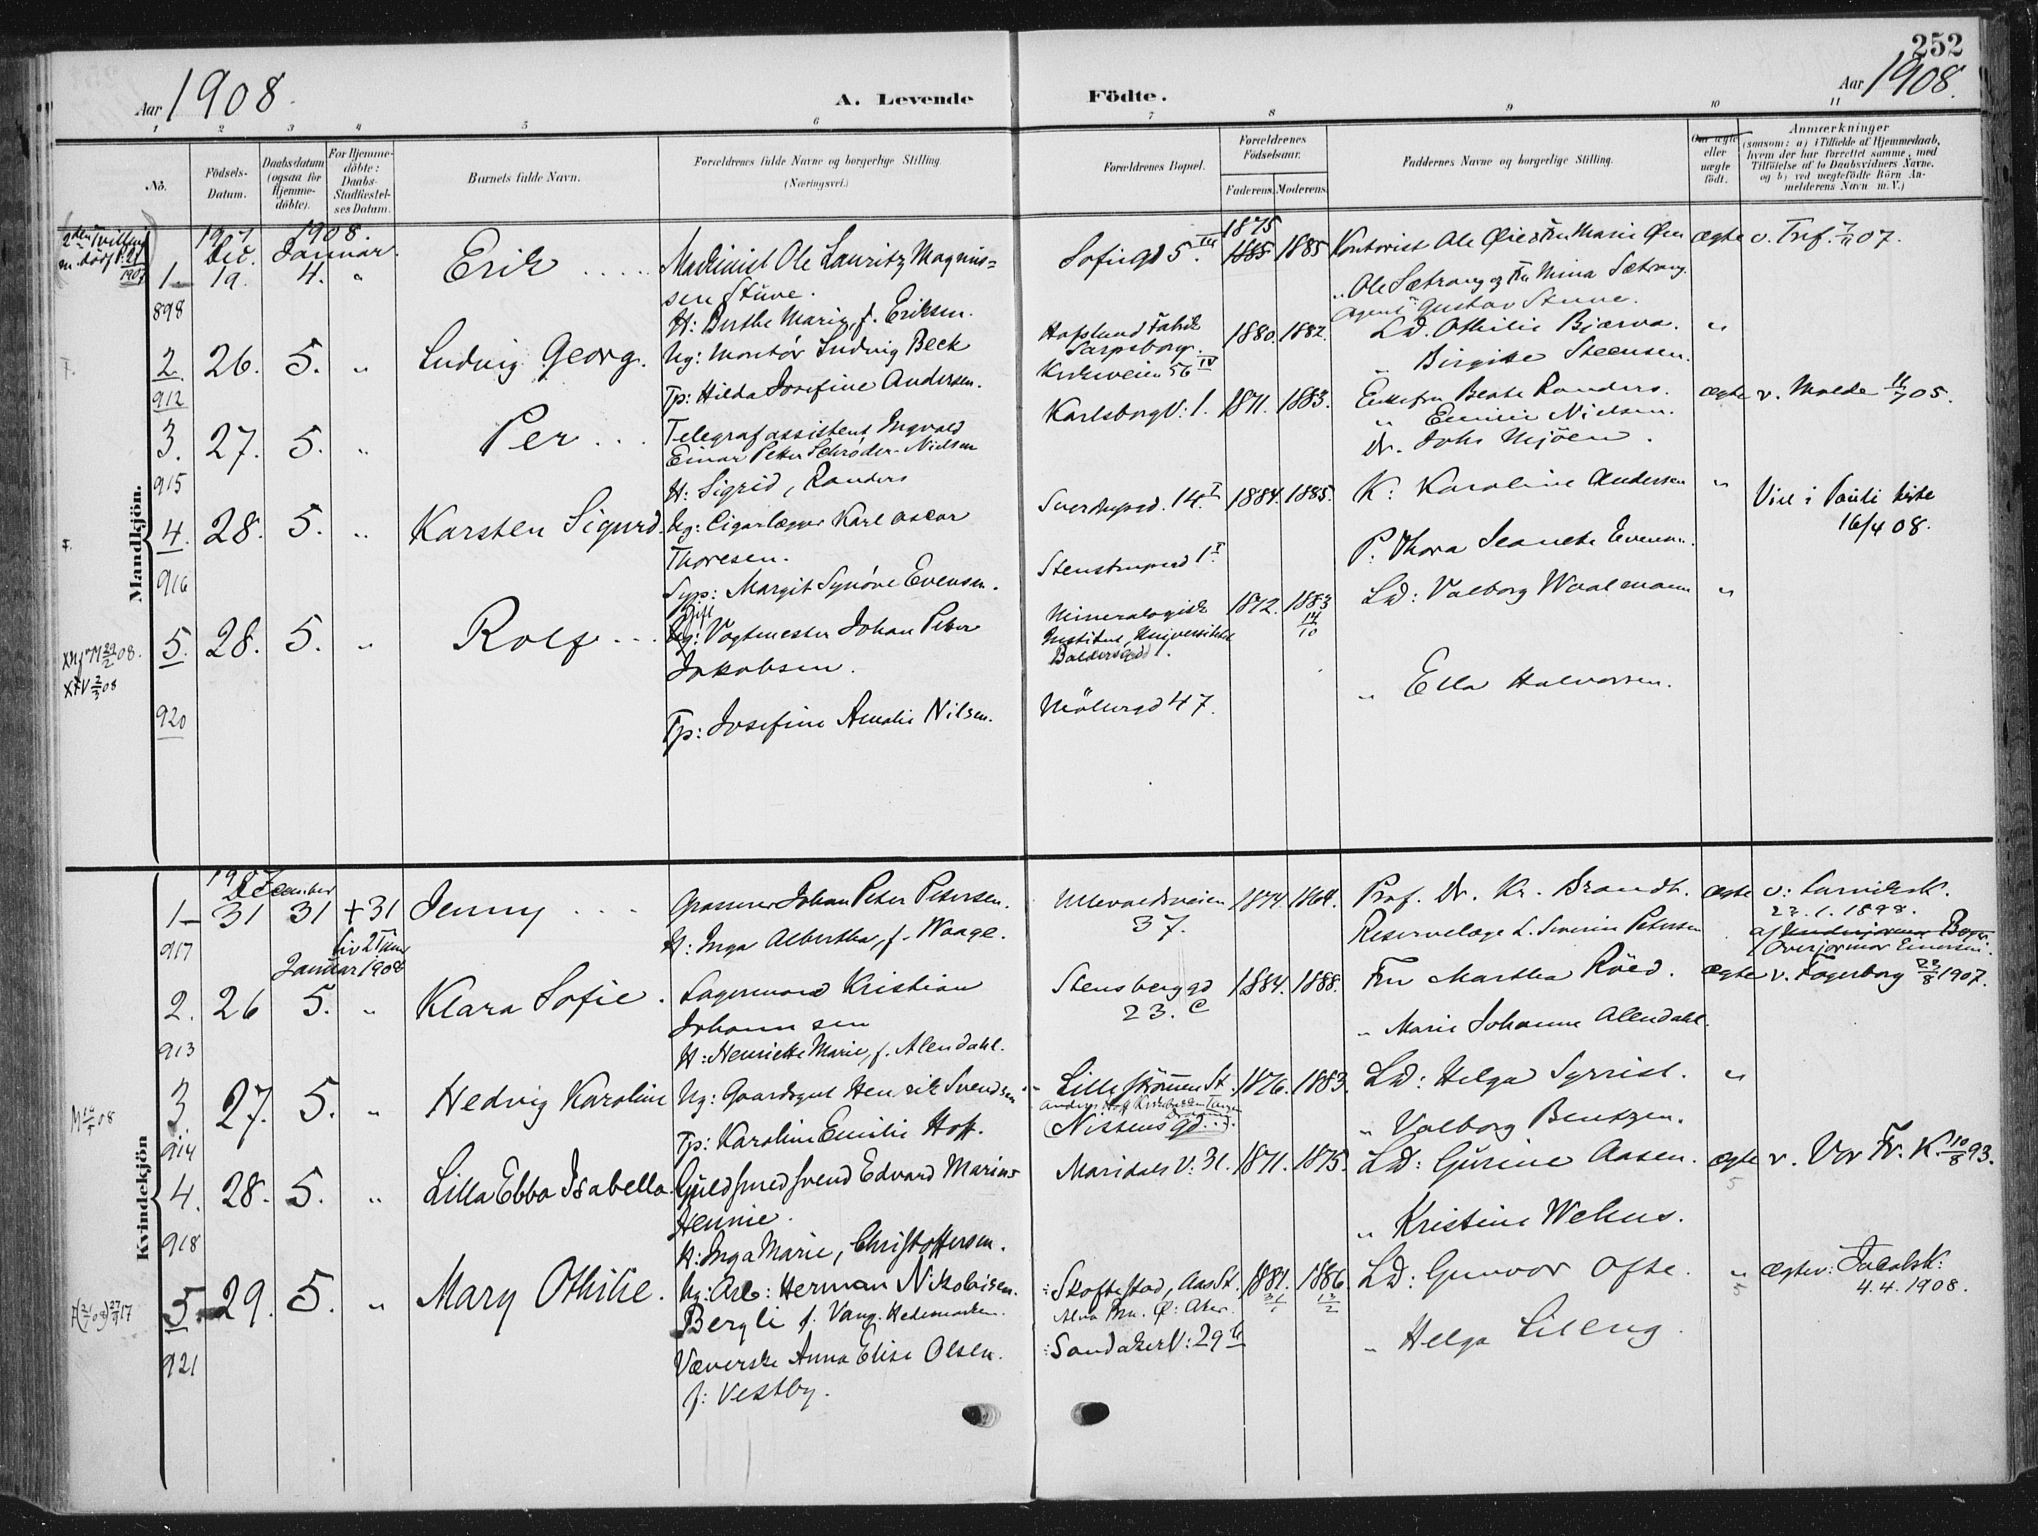 252
Aar 1908.
A. Levende Födte.
Aar 1908.
1 2 3 4 5 6 7 8 9 10 11
No.
Födsels-
Datum.
Daabsdatum
(ogsaa for
Hjemme-
döbte).
For Hjemme-
döbte:
Daabs-
Stadfæstel-
ses Datum.
Barnets fulde Navn.
Forældrenes fulde Navne og borgerlige Stilling.
(Næringsvei.)
Forældrenes Bopæl.
Forældrenes
Födselsaar.
Faderens. Moderens.
Faddernes Navne og borgerlige Stilling.
Om ægte
eller
uægte
födt.
Anmærkninger
(saasom: a) i Tilfælde af Hjemmedaab,
hvem der har forrettet samme, med
Tilföielse af to Daabsvidners Navne,
og b) ved uægtefödte Börn An-
melderens Navn m. V.)
Mandkjön.
1907 Dec. 1908. Januar
1 19. 4. " Erik
898
Maskinist Ole Lauritz Magnus-
sen Stuve.
H: Berthe Marie, f. Eriksen.
Sofiegd 5 III
1875
1885 1885
Kontorist Ole Øien Fru Marie Øen
" Ole Sætrang og Fru Mina Sætrang.
Agent Gustav Stuve.
ægte v. Tref. 7/11 07.
2. 26. 5. " Ludvig Georg.
912
Ug: Montör Ludvig Beck
Tp: Hilda Josefine Andersen.
Hafslund Fabrik
Sarpsborg.
Kirkeveien 56 IV
1880. 1882.
Ld. Othilie Bjærva.
" Birgitte Steensen.
"
3. 27. 5. " Per
915
Telegrafassistent Ingvald
Einar Peter Schrøder-Nielsen
H: Sigrid, Randers
Karlsborg V: 1. 1871. 1883.
Enkefru Beate Randers.
" Emmie Nielsen.
Dr. Johs Mjöen.
ægte v. Molde 11/7 05.
4. 28. 5. " Karsten Sigurd.
916
Ug: Cigarlægger Karl Oscar
Thoresen.
Syp: Margit Synöve Evensen.
Sverdrupsgd. 14. I
Stenstrupsgd 1. I
1884. 1885.
K: Karoline Andersen
P. Thora Jeanette Evensen.
"
Viel i Pauli kirke
16/4 08.
5. 28. 5. " Rolf
920
Gift
Ug: Vagtmester Johan Peter
Jakobsen.
Tp: Josefine Amalie Nilsen.
Mineralogisk
Institut, Universitetet
Baldersgd 1.
Möllergd 47.
1872. 1883
14/10
Ld: Valborg Waalmann
" Ella Halvorsen.
"
Kvindekjön
1907 December
1 31 31 + 31 Jenny
917
Grosserer Johan Peter Petersen.
H: Inga Albertha, f. Waage.
Ullevaalsveien
37.
1874. 1864.
Prof. Dr. Kr. Brandt.
Reservelæge L. Severin Petersen
ægte v: Larviksk.
23.1.1898.
af
Overjormor Einersen.
Januar 1908
2. 26 5. " Klara Sofie.
913
Lagermand Kristian
Johannsen
H: Henriette Marie, f. Alendahl.
Stensberggd
23. C
1884. 1888.
Fru Martha Röed.
" Marie Johanne Alendahl.
ægte v. Fagerborg 22/8 1907.
3. 27. 5. " Hedvig Karoline
914
Ug: Gaardsgut Henrik Svendsen
Tp: Karoline Emilie Hoff.
Lillestrømmen St.
Nissensgd
1876. 1883.
Ld: Helga Syrrist.
" Valborg Bentzen.
"
4. 28. 5. " Lilla Ebba Isabella.
918
Guldsmedsvend Edvard Marius
Hennie.
H: Inga Marie, Christoffersen.
Maridals V: 31. 1871. 1875.
Ld: Gurine Aasen.
" Kristine Wehus.
ægte v. Vor Fr. K. 10/8 93.
5
5. 29. 5. " Mary Othilie.
921
Ug: Arb: Herman Nikolaisen.
Bergli f. Vang. Hedemarken.
Væverske Anna Elise Olsen.
f: Vestby.
Skoftestad, Aas St.
Sandaker V: 29 II
1881. 1886.
31/1 12/2
Ld: Gunvor Ofte.
" Helga Lileng.
" ægte v: Jacobsk:
4.4.1908.
5